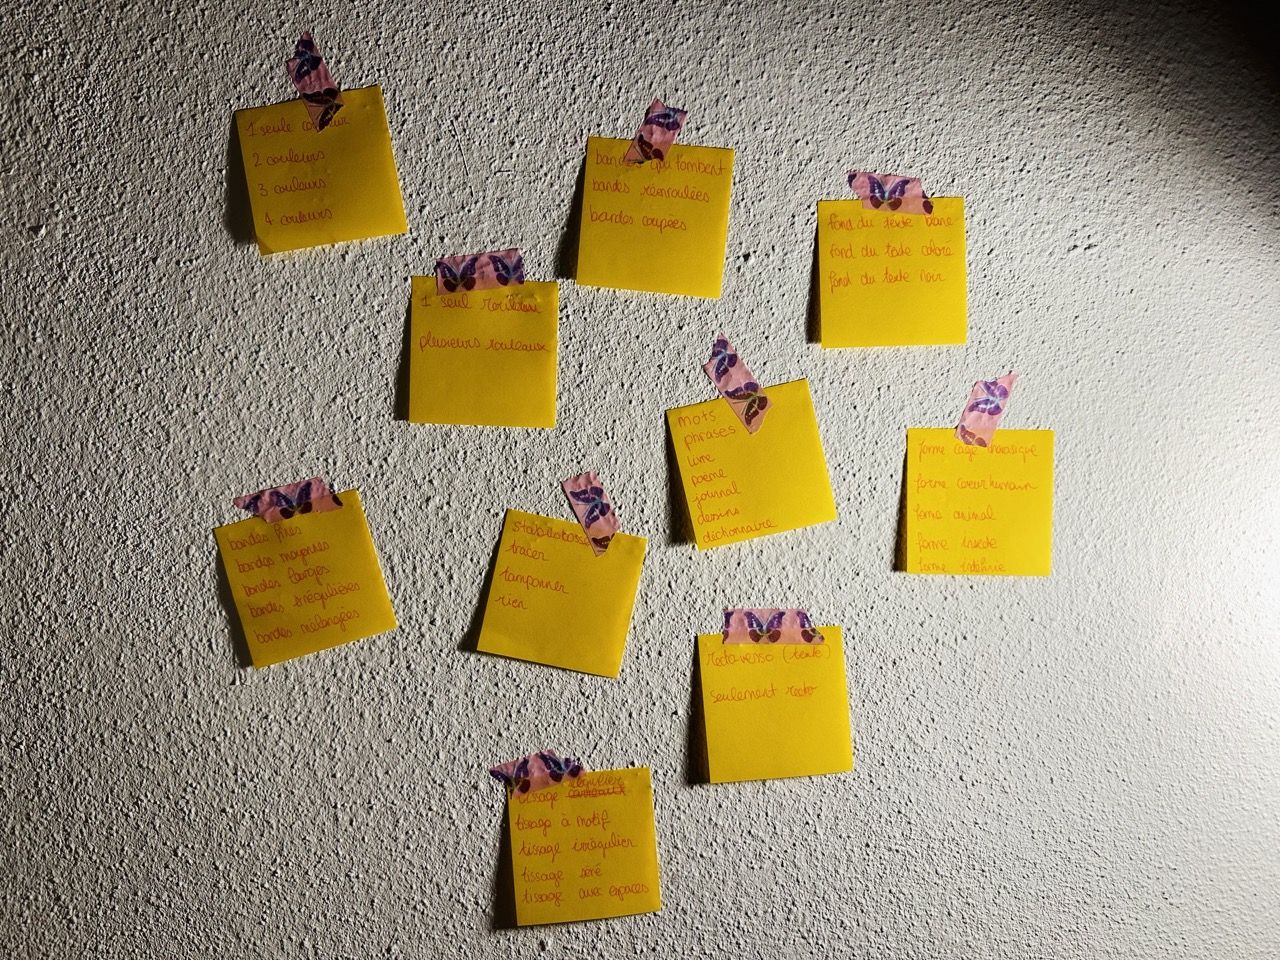 1 seule couleur
2 couleurs
3 couleurs
4 couleurs
bandes qui tombent
bandes renroulées
bandes coupées
fond du texte blanc
fond du texte coloré
fond du texte noir
1 seul rouleau
plusieurs rouleaux
mots
phrases
livre
poème
journal
dessins
dictionnaire
forme cage thorasique
forme coeur humain
forme animal
forme insecte
forme indéfinie
bandes fines
bandes moyennes
bandes larges
bandes irrégulières
bandes mélangées
tracer
tamponner
rien
recto verso (texte)
seulement recto
tissage régulier
tissage à motif
tissage irrégulier
tissage séré
tissage avec espaces